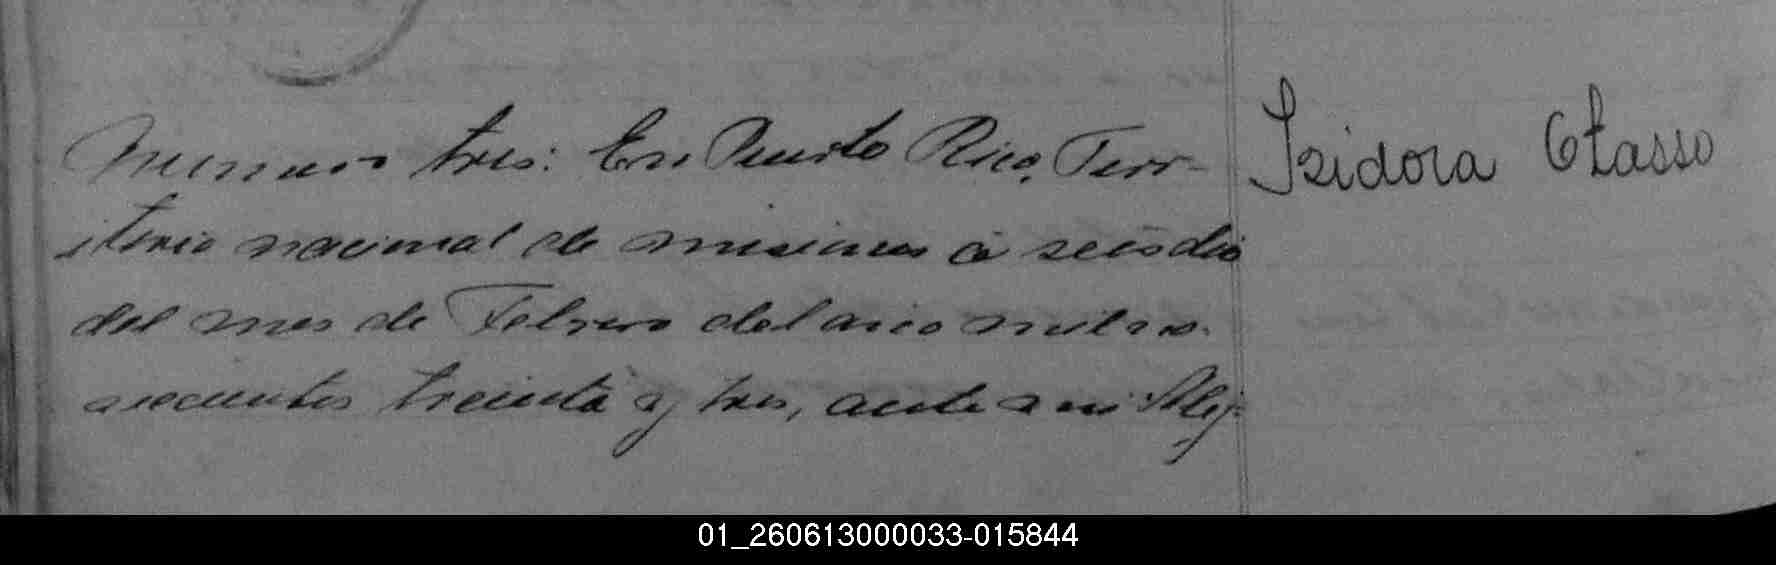 Numero tres: En Puerto Rico, Terr-
itorio nacional de misiones á seis dia
del mes de Febrero del año mil no-
vecientos treinta y tres, ante mi Alej-
Isidora Otasso
01_260613000033-015844